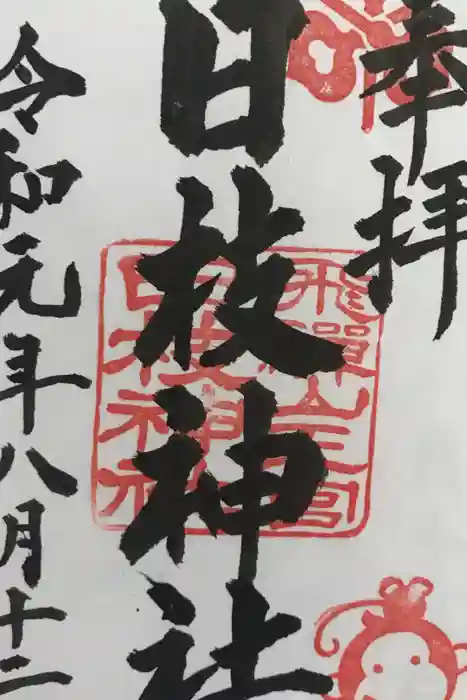 奉拝
日枝神社
飛騨山王宮
日枝神社
令和元年八月十二